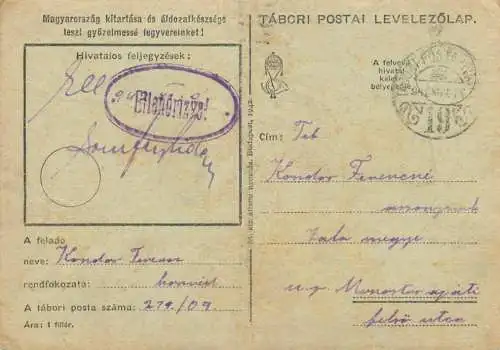 Magyarország kitartása és áldozatkészsége
teszi győzelmessé fegyvereinket!
Hivatalos feljegyzések:
Ellenőrizve!
A feladó
neve: Kondor Ferenc
rendfokozata: honvéd
A tábori posta száma: 219/09
Ára: 1 fillér.
Budapest, 1942.
TÁBORI POSTAI LEVELEZŐLAP.
A felvevő
hivatal
keleti
bélyegzője
19
Cím: Tek
Kondor Ferencné
asszonynak
Zala megye
u. p. Monostorapáti
felső utca